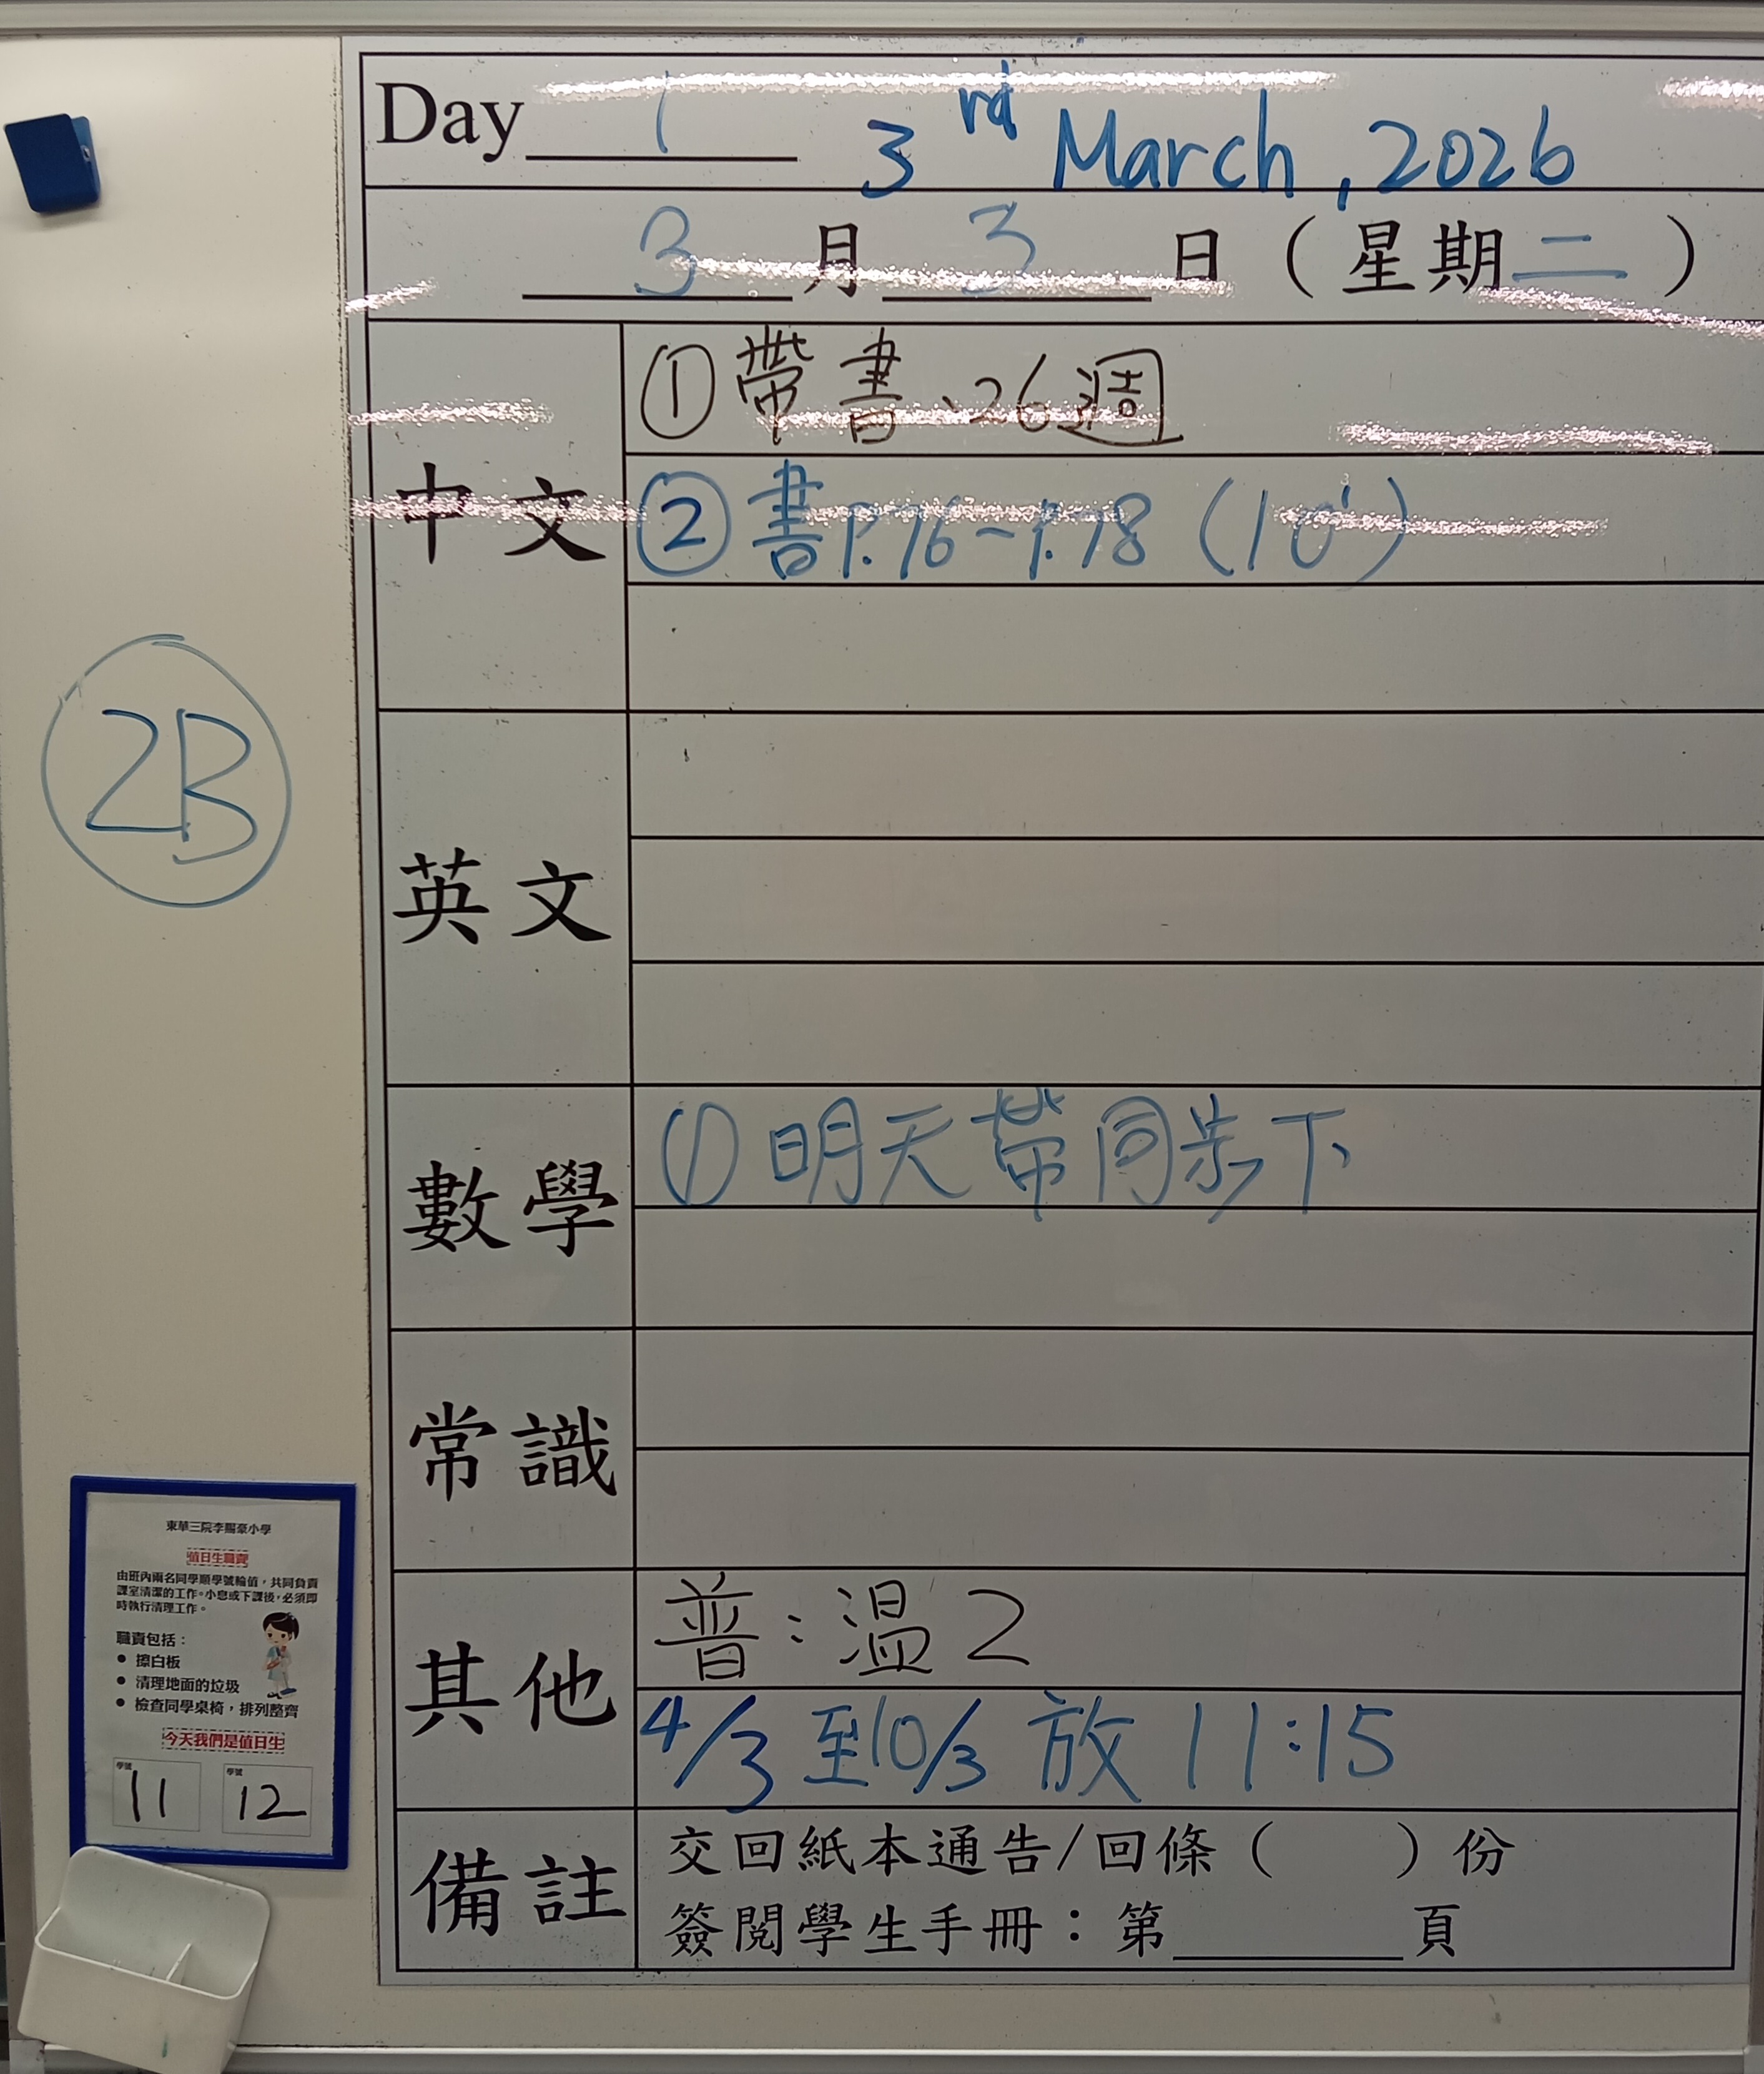 Day 1 3rd March, 2026
3月3日（星期二）
中文
①帶書、26週
②書P.76~P.78 (10')
英文
數學
①明天帶同步下
常識
其他
普：溫2
4/3 至10/3 放 11:15
備註
交回紙本通告/回條（ ）份
簽閱學生手冊：第______頁
2B
東華三院李賜豪小學
值日生職責
由班內兩名同學順學號輪值，共同負責
課室清潔的工作。小息或下課後，必須即
時執行清理工作。
職責包括：
● 擦白板
● 清理地面的垃圾
● 檢查同學桌椅，排列整齊
今天我們是值日生
學號 11 學號 12